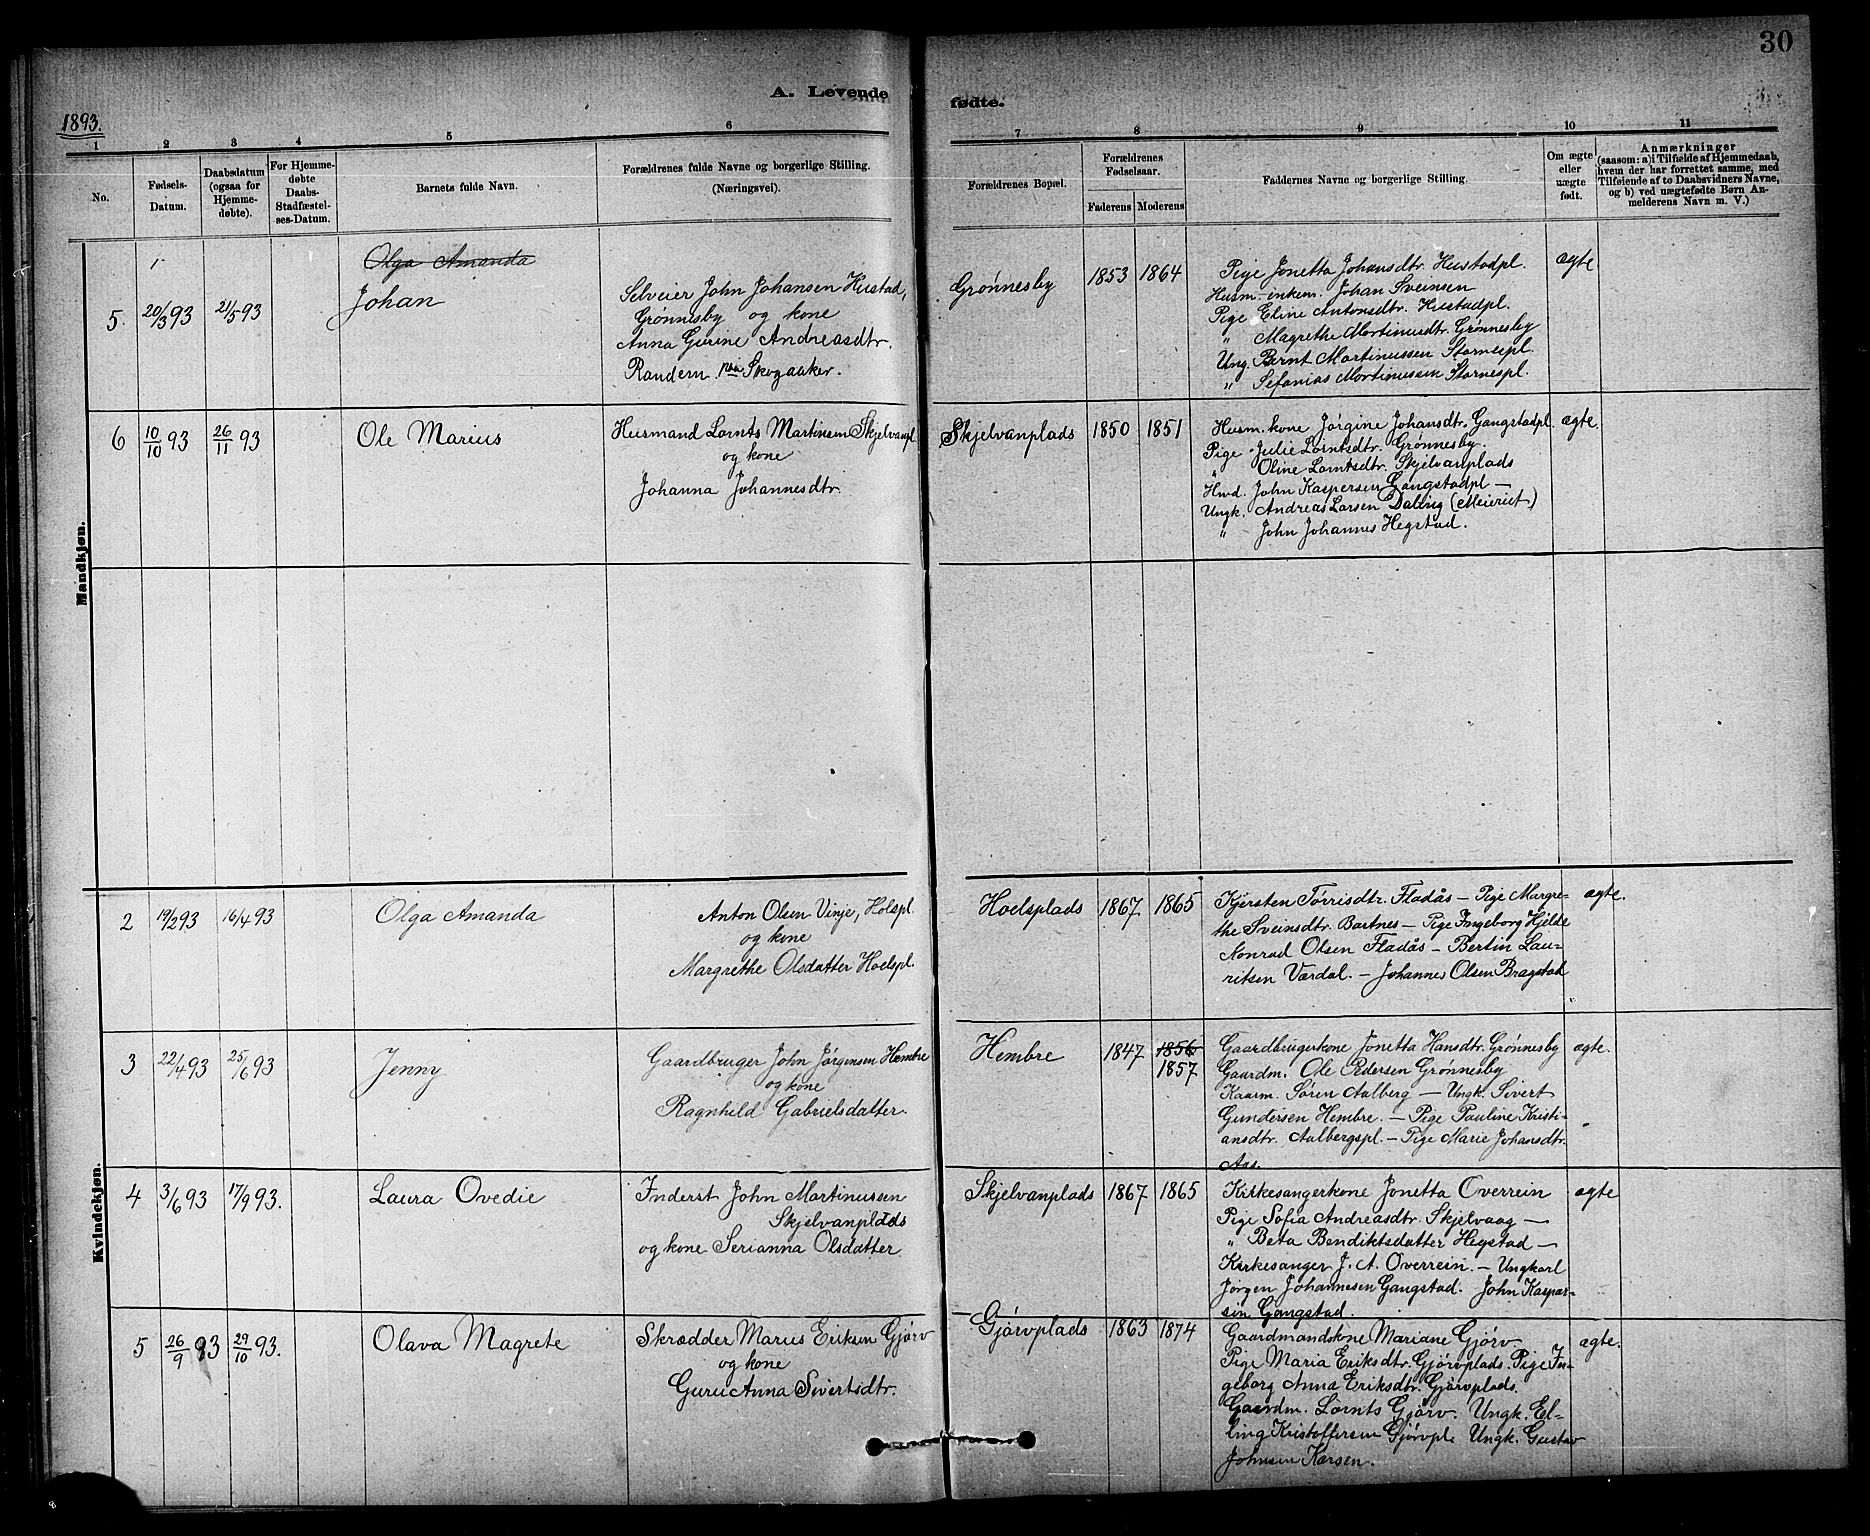 30
A. Levende
fødte.
1893.
1 2 3 4 5 6 7 8 9 10 11
No.
Fødsels-
Datum.
Daabsdatum
(ogsaa for
Hjemme-
døbte).
For Hjemme-
døbte
Daabs-
Stadfæstel-
ses-Datum.
Barnets fulde Navn.
Forældrenes fulde Navne og borgerlige Stilling.
(Næringsvei).
Forældrenes Bopæl.
Forældrenes
Fødselsaar.
Faderens Moderens
Faddernes Navne og borgerlige Stilling.
Om ægte
eller
uægte
født.
Anmærkninger
(saasom: a) i Tilfælde af Hjemmedaab,
hvem der har forrettet samme, med
Tilføiende af to Daabsvidners Navne,
og b) ved uægtefødte Børn An-
melderens Navn m. V.)
Mandkjøn.
Olga Amanda
5. 20/3 93 21/5 93
Johan
Selveier John Johansen Hustad,
Grønnesby og kone
Anna Gurine Andreasdtr.
Randem paa Skogaaker.
Grønnesby
1853 1864
Pige Jonetta Johansdtr. Hustadpl.
Husm. enkem. Johan Sveinsen
Pige Eline Antonsdtr. Hustadpl.
" Magrethe Mortinusdtr. Grønnesby
Ung. Bernt Martinussen Stornespl.
" Sefanias Mortinussen Stornespl.
ægte.
6 10/10 93 26/11 93
Ole Marius
Husmand Lornts Martinsen Skjelvanpl.
og kone
Johanna Johannesdtr.
Skjelvanplads
1850 1851
Husm. kone Jørgine Johansdtr. Gangstadpl.
Pige Julie Lorntsdtr. Grønnesby.
" Oline Lorntsdtr. Skjelvanplads
Hmd. John Kaspersen Gangstadpl –
Ungk. Andreas Larsen Dalbrig (Meieriet)
" John Johannes Hegstad.
ægte.
Kvindekjøn.
2 19/2 93 16/4 93
Olga Amanda
Anton Olsen Vinje, Holspl.
og kone
Margrethe Olsdatter Hoelspl.
Hoelsplads
1867 1865
Kjersten Torrisdtr. Fladås – Pige Margre-
the Sveinsdtr. Bartnes – Pige Ingeborg Hjelde
Konrad Olsen Fladås – Bertin Lau-
ritsen Værdal. – Johannes Olsen Bragstad
ægte.
3 22/4 93 25/6 93
Jenny
Gaardbruger John Jørgensen Hembre
og kone
Ragnhild Gabrielsdatter.
Hembre
1847 1856
1857
Gaardbrugerkone Jonetta Hansdtr. Grønnesby
Gaardm. Ole Pedersen Grønnesby
Kaarm. Søren Aalberg – Ungk. Sivert
Gundersen Hembre. – Pige Pauline Kristi-
ansdtr. Aalbergspl. – Pige Marie Johansdtr.
Aas.
ægte.
4 3/6 93 17/9 93.
Laura Ovedie
Inderst John Martinussen
Skjelvanplads
og kone Serianna Olsdatter.
Skjelvanplads
1867 1865
Kirkesangerkone Jonetta Overrein
Pige Sofia Andreasdtr. Skjelvaag –
" Beta Bendiktsdatter Hegstad –
Kirkesanger J. A. Overrein. – Ungkarl
Jørgen Johannesen Gangstad. John Kasper-
sen Gangstad.
ægte
5 26/9 93 29/10 93.
Olava Magrete
Skrædder Marius Eriksen Gjørv
og kone
Guru Anna Sivertsdtr.
Gjørvplads
1863 1874
Gaardmandskone Mariane Gjørv
Pige Maria Eriksdtr. Gjørvplads. Pige In-
geborg Anna Eriksdtr. Gjørvplads.
Gaardm. Lornts Gjørv. Ungk. El-
ling Kristoffersen Gjørvpl. Ungk. Gustav
Johnsen Karsen.
ægte.
8